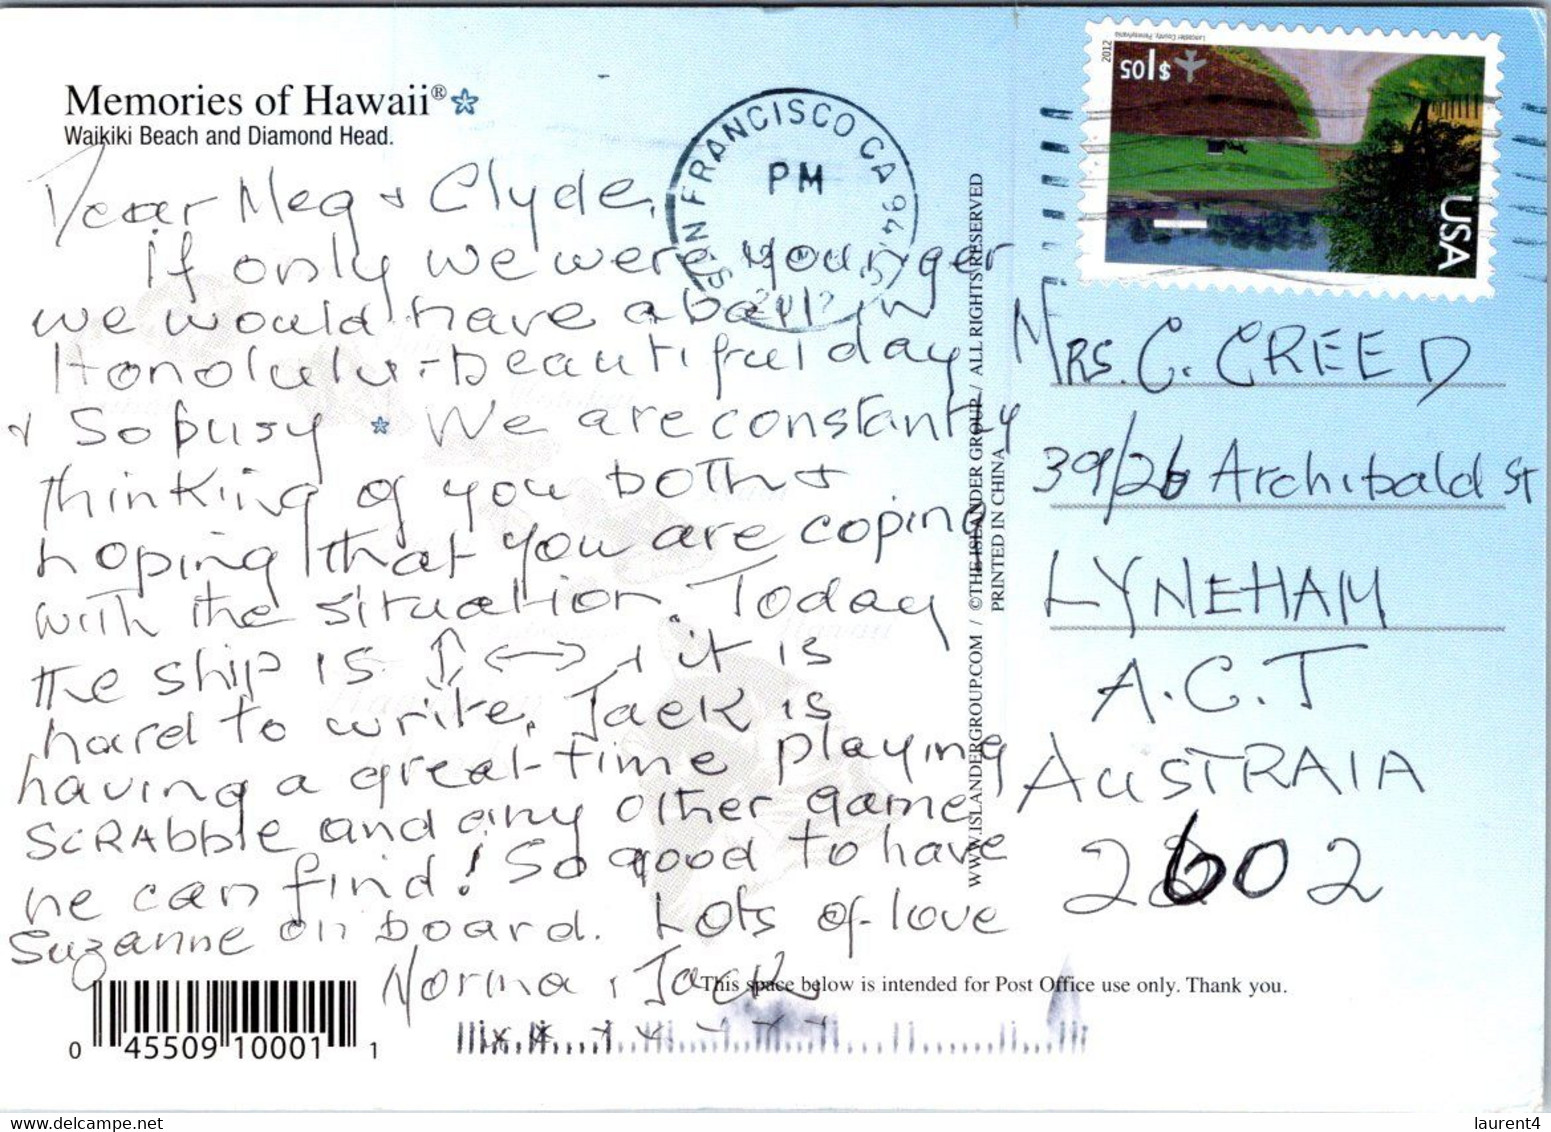 Memories of Hawaii®
Waikiki Beach and Diamond Head.
Dear Meg & Clyde,
if only we were younger
we would have a ball in
Honolulu - beautiful day
& so busy We are constantly
thinking of you both &
hoping that you are coping
with the situation. Today
the ship is ↕ ↔ & it is
hard to write. Jack is
having a great time playing
SCRAbble and any other game
he can find! So good to have
Suzanne on board. Lots of love
Norma & Jack
x x x x x x x
SAN FRANCISCO CA 94
PM
2012
2012
Lancaster County, Pennsylvania
$1.05
USA
MRS. C. CREED
39/26 Archibald St
LYNEHAM
A.C.T
AUSTRAIA
2602
WWW.ISLANDERGROUP.COM / ©THE ISLANDER GROUP / ALL RIGHTS RESERVED
PRINTED IN CHINA
This space below is intended for Post Office use only. Thank you.
0 45509 10001 1
delcampe.net
laurent4